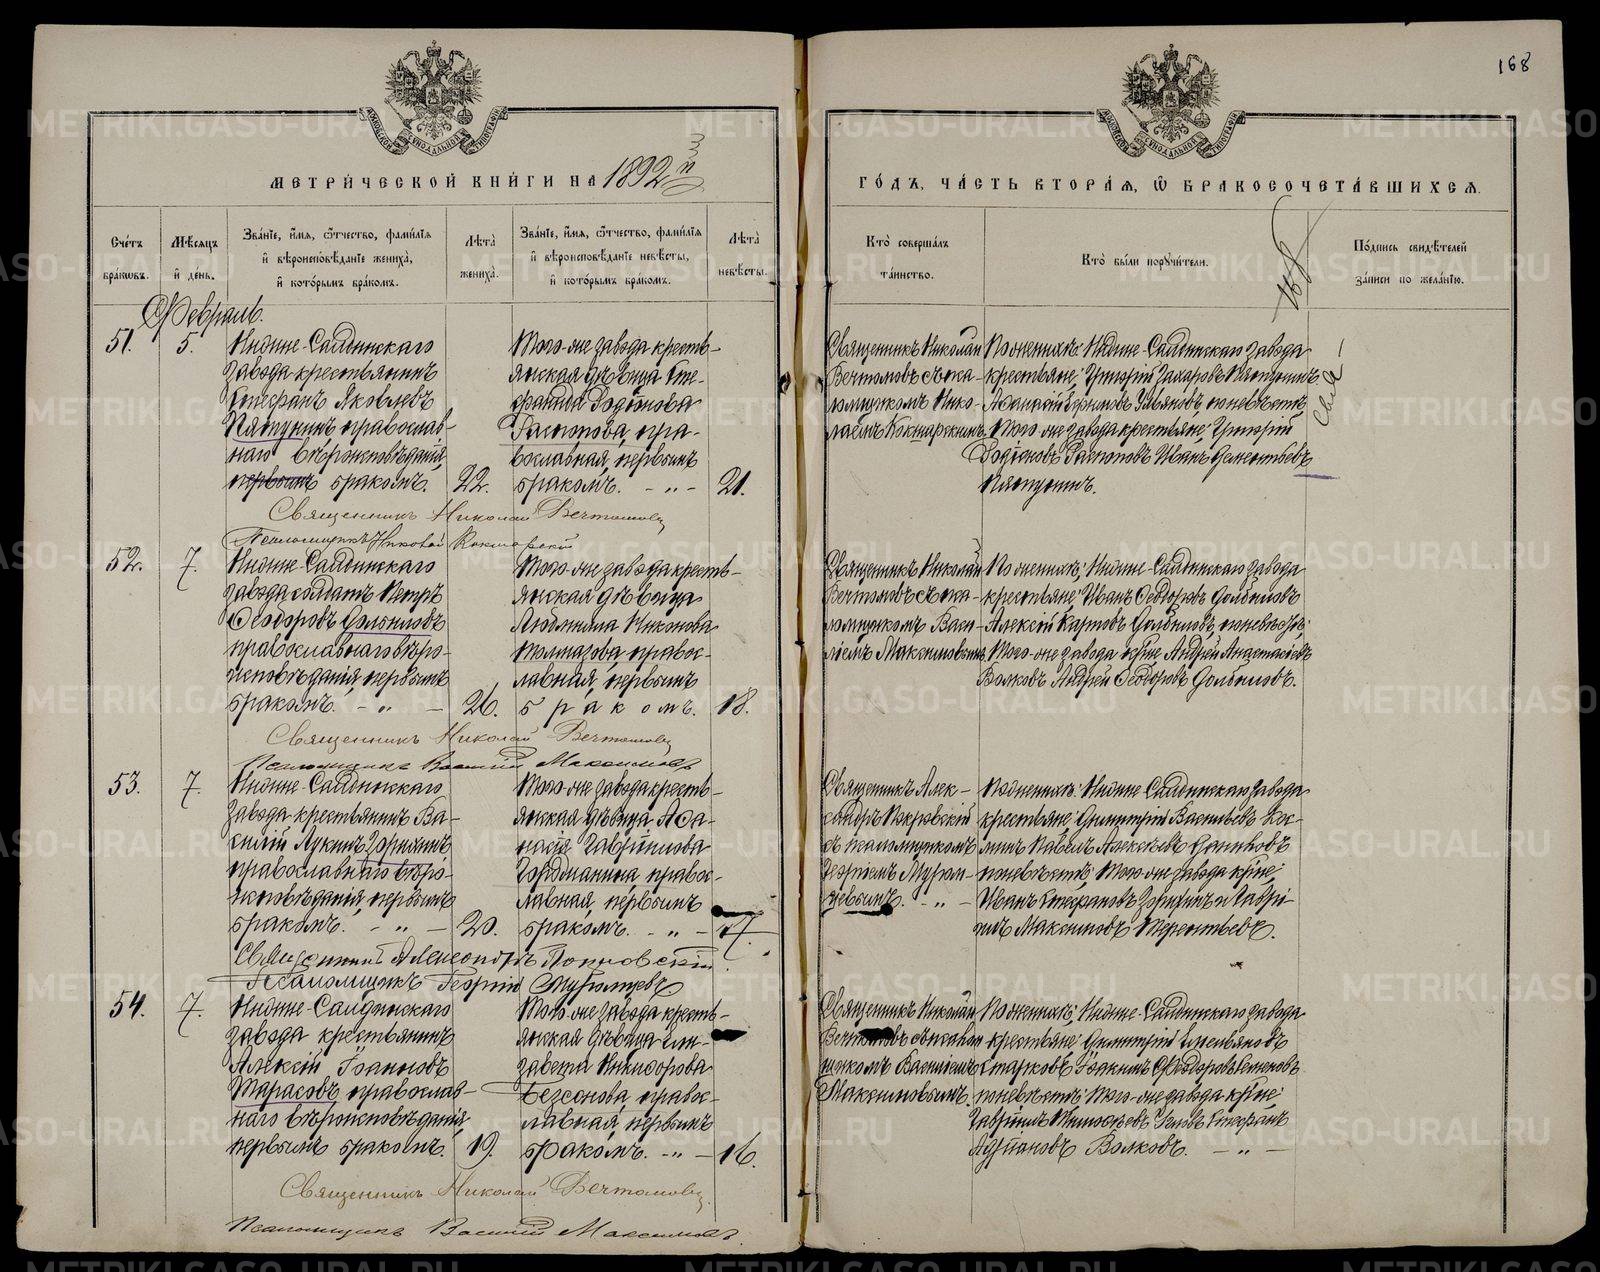 168
МЕТРИ́ЧЕСКОЙ КНИ́ГИ НА 1892 й
ГО́ДЪ, ЧА́СТЬ ВТОРА́Я, Ѡ БРАКОСОЧЕТА́ВШИХСЯ.
Сче́тъ бра́ковъ.
Мѣ́сяцъ и́ де́нь.
Зва́нїе, и́мя, ѻ́тчество, фами́лїя и́ вѣроисповѣ́данїе жениха̀, и́ кото́рымъ бра́комъ.
Лѣ́та жениха̀.
Зва́нїе, и́мя, ѻ́тчество, фами́лїя и́ вѣроисповѣ́данїе невѣ́сты, и́ кото́рымъ бра́комъ.
Лѣ́та невѣ́сты.
Кто̀ соверша́лъ та́инство.
Кто̀ бы́ли порꙋчи́тели.
По́дпись свидѣ́телей за́писи по жела́нїю.
168
Февраль.
51.
5.
Нижне-Салдинскаго
завода крестьянинъ
Стефанъ Яковлевъ
Пряпунинъ православ-
наго вѣроисповѣданія,
первымъ бракомъ.
22.
Того-же завода кресть-
янская дѣвица Сте-
фанида Родіонова
Распопова, пра-
вославная, первымъ
бракомъ. - „ -
21.
Священникъ Николай
Вечтомовъ съ пса-
ломщикомъ Нико-
лаемъ Кокшарскимъ.
По женихѣ: Нижне-Салдинскаго завода
крестьяне: Григорій Захаровъ
Ульяновъ, по невѣстѣ,
Того-же завода крестьяне: Григорій
Родіоновъ Распоповъ Иванъ Дементьевъ
Священникъ Николай Вечтомовъ
Псаломщикъ Николай Кокшарскій
52.
7.
Нижне-Салдинскаго
завода солдатъ Петръ
Феодоровъ Долбиловъ
православнаго вѣро-
исповѣданія, первымъ
бракомъ. - „ -
26.
Того-же завода кресть-
янская дѣвица
Людмила Никонова
Толмазова, правос-
лавная, первымъ
бракомъ.
18.
Священникъ Николай
Вечтомовъ съ пса-
ломщикомъ Васи-
ліемъ Максимовымъ.
По женихѣ: Нижне-Салдинскаго завода
крестьяне: Иванъ Феодоровъ Долбиловъ
Алексій Карповъ Долбиловъ, по невѣстѣ:
Того-же завода кр-не Андрей Анастасіевъ
Волковъ Андрей Феодоровъ Долбиловъ.
Священникъ Николай Вечтомовъ
Псаломщикъ Василій Максимовъ
53.
7.
Нижне-Салдинскаго
завода крестьянинъ Ва-
силій Лукинъ Зорихинъ
православнаго вѣро-
исповѣданія, первымъ
бракомъ. - „ -
20.
Того-же завода кресть-
янская дѣвица Афа-
насія Гавріилова
правос-
лавная, первымъ
бракомъ. - „ -
17.
Священникъ Алек-
сандръ Покровскій
съ псаломщикомъ
Георгіемъ
По женихѣ: Нижне-Салдинскаго завода
крестьяне: Димитрій Васильевъ Кос-
минъ Павелъ Алексѣевъ
по невѣстѣ: Того-же завода кр-не;
Иванъ Стефановъ Зорихинъ и Гаврі-
илъ Максимовъ Терентьевъ.
Священникъ Александръ Покровскій
Псаломщикъ Георгій
54.
7.
Нижне-Салдинскаго
завода крестьянинъ
Алексій Іоанновъ
Тарасовъ православ-
наго вѣроисповѣданія,
первымъ бракомъ.
19.
Того-же завода кресть-
янская дѣвица Ели-
завета Никифорова
Безсонова, правос-
лавная, первымъ
бракомъ. - „ -
16.
Священникъ Николай
Вечтомовъ съ псалом-
щикомъ Василіемъ
Максимовымъ.
По женихѣ: Нижне-Салдинскаго завода
крестьяне: Димитрій Емельяновъ
Старковъ Іоакимъ Феодоровъ Семеновъ
по невѣстѣ: Того-же завода кр-не;
Гавріилъ Тимофеевъ Стефанъ
Адріановъ Волковъ. - „ -
Священникъ Николай Вечтомовъ
Псаломщикъ Василій Максимовъ.
METRIKI.GASO-URAL.RU